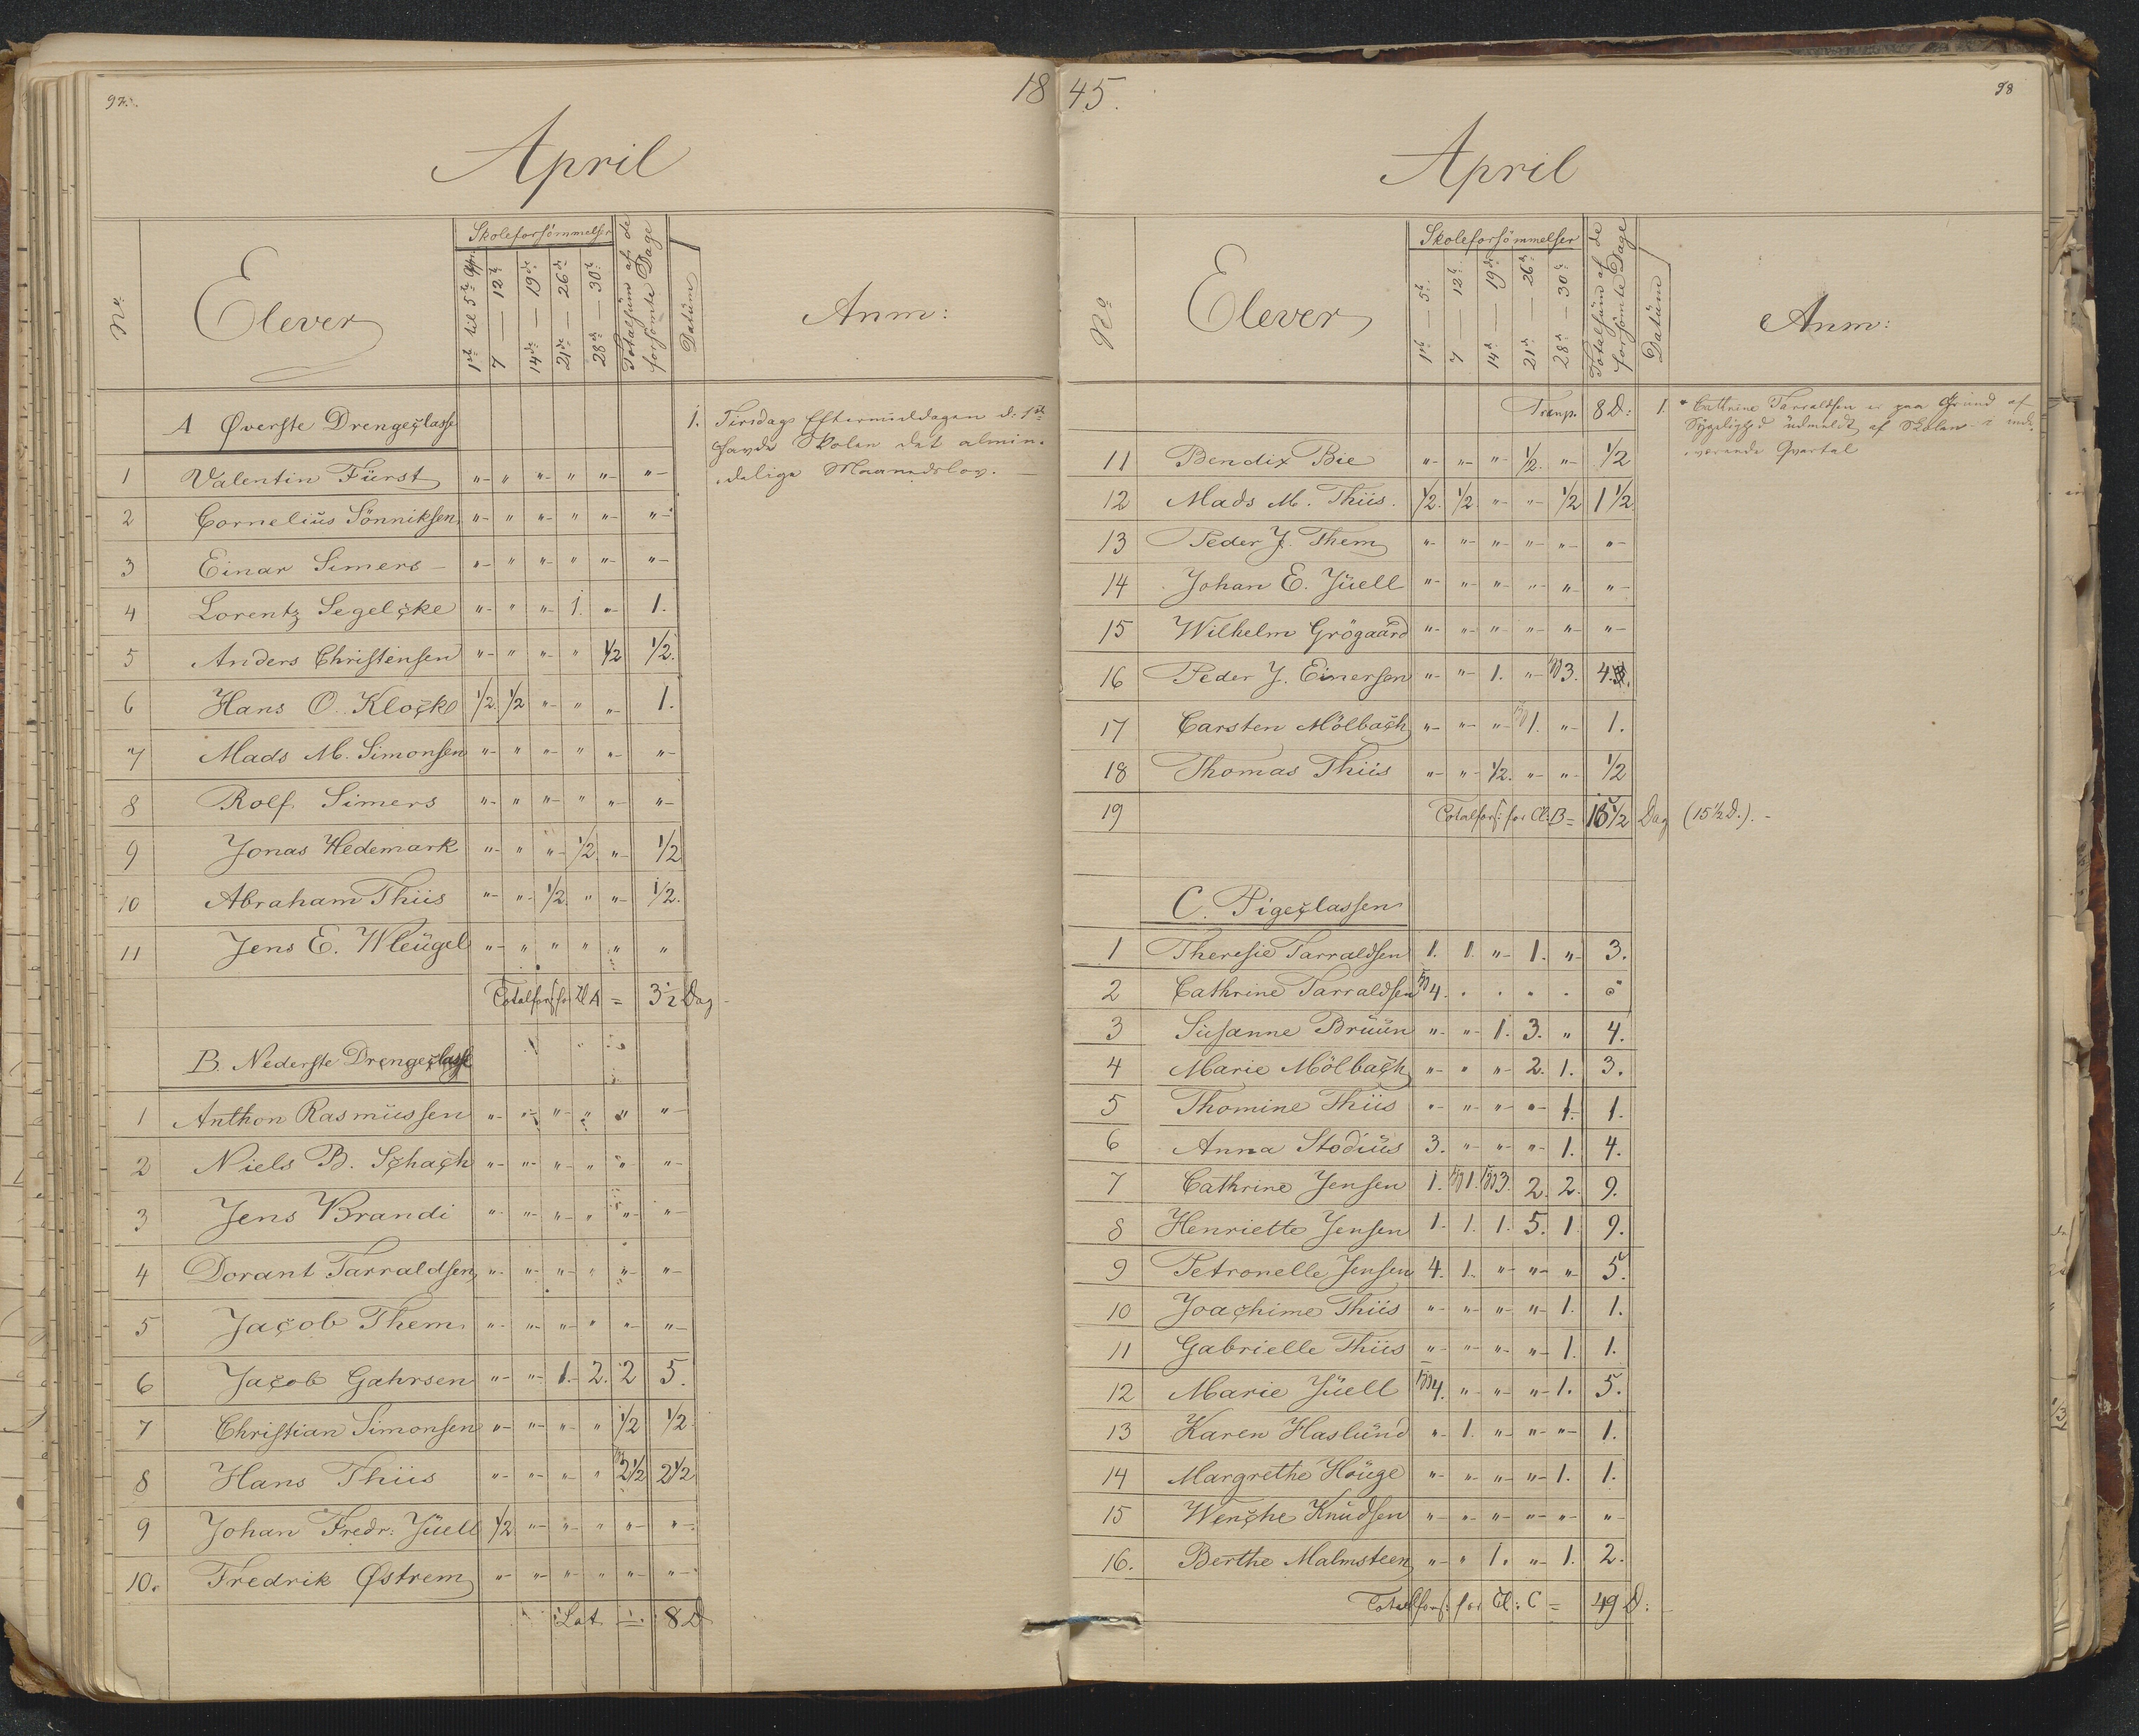 97.
18
April
No.
Elever
Skoleforsömmelser
1ste til 5te Apr:
7 — 12te
14de — 19de
21de — 26de
28de — 30te
Totalsüm af de forsömte Dage
Datüm
Anm:
A Øverste Drengeclasse
1. Tirsdags Eftermiddagen d: 1ste
havde Skolen det almin-
delige Maanedslov. —
1 Valentin Fürst "- " "- " "- "-
2 Cornelius Sönniksen "- " "- " "- "-
3 Einar Simers "- " "- " "- "-
4 Lorentz Segelcke "- " "- 1. "- 1.
5 Anders Christensen "- " "- " 1/2 1/2.
6 Hans O. Klocke 1/2. 1/2 "- " "- 1.
7 Mads M. Simonsen "- " "- " "- "-
8 Rolf Simers "- " "- " "- "-
9 Jonas Hedemark "- " "- 1/2 "- 1/2
10 Abraham Thiis "- "- 1/2. " "- 1/2.
11 Jens E. Wleügel "- " " " " "
Totalfors: for Cl A = 3 1/2 Dag
B. Nederste Drengeclasse
1 Anthon Rasmüssen "- "- "- " " "-
2 Niels B. Schach "- "- "- " "- "-
3 Jens Brandi "- "- "- " "- "-
4 Dorant Tarraldsen "- "- "- " "- "-
5 Jacob Them "- "- "- " "- "-
6 Jacob Gahrsen "- "- 1. 2. 2 5.
7 Christian Simonsen "- "- "- " 1/2 1/2
8 Hans Thiis "- "- "- " 2 1/2 2 1/2
9 Johan Fredr: Jüell 1/2 "- "- " "- "-
10. Fredrik Østrem "- "- "- " "- "-
Lat. 8 D
45.
98
April
No
Elever
Skoleforsömmelser
1ste — 5te
7 — 12te
14de — 19de
21de — 26de
28de — 30te
Totalsüm af de forsömte Dage
Datüm
Anm:
Transp. 8 D:
1. * Cathrine Tarraldsen er paa Grund af
Sygelighed udmeldt af Skolen i inde-
værende Qvartal
11 Bendix Bie "- "- "- 1/2. "- 1/2
12 Mads M. Thiis. 1/2. 1/2 "- "- 1/2 1 1/2
13 Peder J. Them "- "- "- "- "- "-
14 Johan E. Jüell "- "- "- "- " "-
15 Wilhelm Grögaard "- "- "- "- "- "-
16 Peder J. Einersen "- "- 1. "- 3. 4.
17 Carsten Mölbach "- "- "- 1. "- 1.
18 Thomas Thiis "- "- 1/2. "- "- 1/2
19 Totalfors: for Cl: B = 15 1/2 Dag (15 1/2 D.). -
C. Pigeclassen
1 Theresie Tarraldsen 1. 1. "- 1. "- 3.
2 Cathrine Tarraldsen 4. . . . .
3 Süsanne Brüün "- "- 1. 3. " 4.
4 Marie Mölbach "- " "- 2. 1. 3.
5 Thomine Thiis "- "- "- "- 1. 1.
6 Anna Stodiüs 3. "- "- "- 1. 4.
7 Cathrine Jensen 1. 1. 3. 2. 2. 9.
8 Henriette Jensen 1. 1. 1. 5. 1 9.
9 Petronelle Jensen 4. 1. "- "- "- 5.
10 Joachime Thiis "- "- "- "- 1. 1.
11 Gabrielle Thiis "- "- "- "- 1. 1.
12 Marie Jüell 4. "- "- "- 1. 5.
13 Karen Haslünd "- 1. "- "- "- 1.
14 Margrethe Houge "- "- "- "- 1. 1.
15 Wenche Knüdsen "- "- "- "- "- "-
16. Berthe Malmsteen "- " 1. "- 1. 2.
Totalfors: for Cl: C = 49 D: